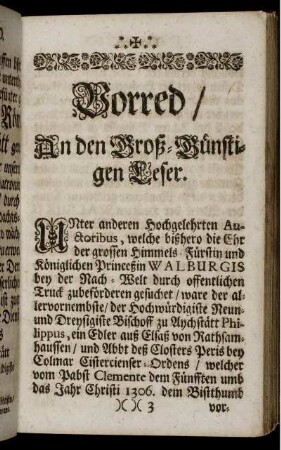 Vorred /
An den Groß-Günsti-
gen Leser.
UNter anderen Hochgelehrten Au-
ctoribus, welche bißhero die Ehr
der grossen Himmels-Fürstin und
Königlichen Princeßin WALBURGIS
bey der Nach-Welt durch offentlichen
Truck zubefördern gesuchet / ware der al-
lervornembste / der Hochwürdigiste Neun-
und Dreysigiste Bischoff zu Aychstätt Phi-
lippus, ein Edler auß Elsaß von Rathsam-
haussen / und Abbt deß Closters Peris bey
Colmar Cistercienser-Ordens / welcher
vom Pabst Clemente dem Fünfften umb
das Jahr Christi 1306. dem Bistthumb
)( )( 3 vor-